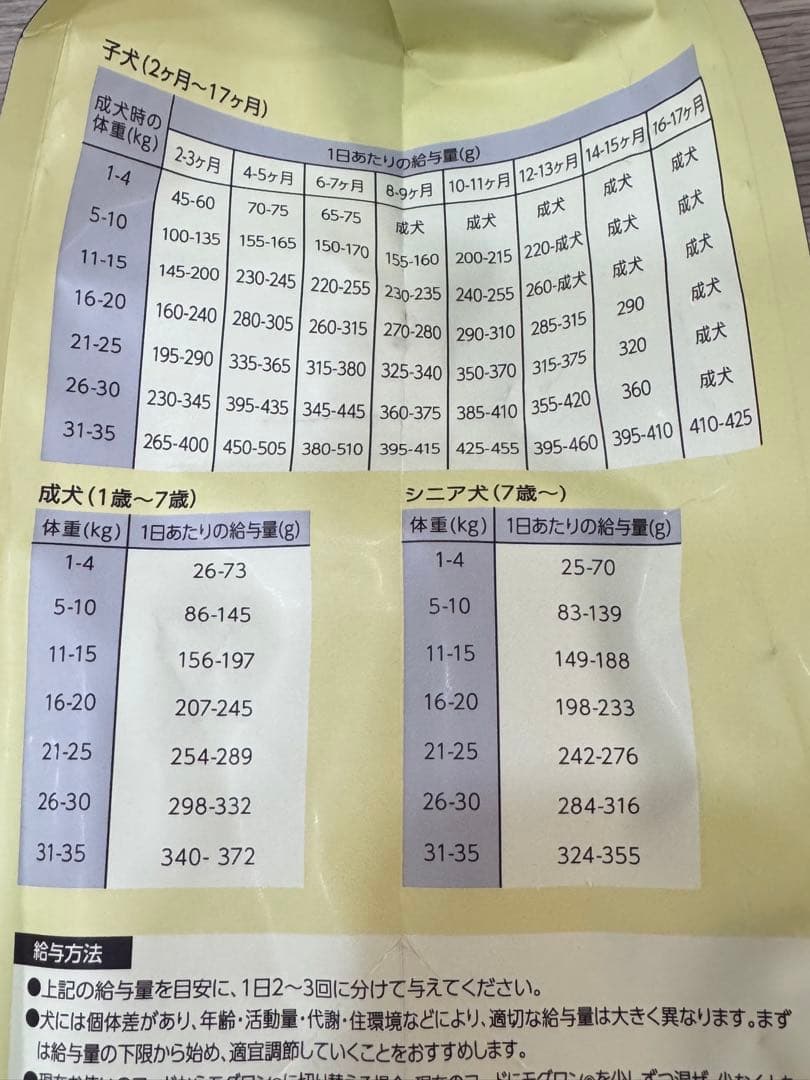 子犬(2ヶ月〜17ヶ月)
成犬時の体重(kg) 1日あたりの給与量(g)
2-3ヶ月 4-5ヶ月 6-7ヶ月 8-9ヶ月 10-11ヶ月 12-13ヶ月 14-15ヶ月 16-17ヶ月
1-4 45-60 70-75 65-75 成犬 成犬 成犬 成犬 成犬
5-10 100-135 155-165 150-170 155-160 200-215 220-成犬 成犬 成犬
11-15 145-200 230-245 220-255 230-235 240-255 260-成犬 成犬 成犬
16-20 160-240 280-305 260-315 270-280 290-310 285-315 290 成犬
21-25 195-290 335-365 315-380 325-340 350-370 315-375 320 成犬
26-30 230-345 395-435 345-445 360-375 385-410 355-420 360 成犬
31-35 265-400 450-505 380-510 395-415 425-455 395-460 395-410 410-425
成犬(1歳〜7歳)
体重(kg) 1日あたりの給与量(g)
1-4 26-73
5-10 86-145
11-15 156-197
16-20 207-245
21-25 254-289
26-30 298-332
31-35 340- 372
シニア犬(7歳〜)
体重(kg) 1日あたりの給与量(g)
1-4 25-70
5-10 83-139
11-15 149-188
16-20 198-233
21-25 242-276
26-30 284-316
31-35 324-355
給与方法
●上記の給与量を目安に、1日2〜3回に分けて与えてください。
●犬には個体差があり、年齢・活動量・代謝・住環境などにより、適切な給与量は大きく異なります。まず
は給与量の下限から始め、適宜調節していくことをおすすめします。